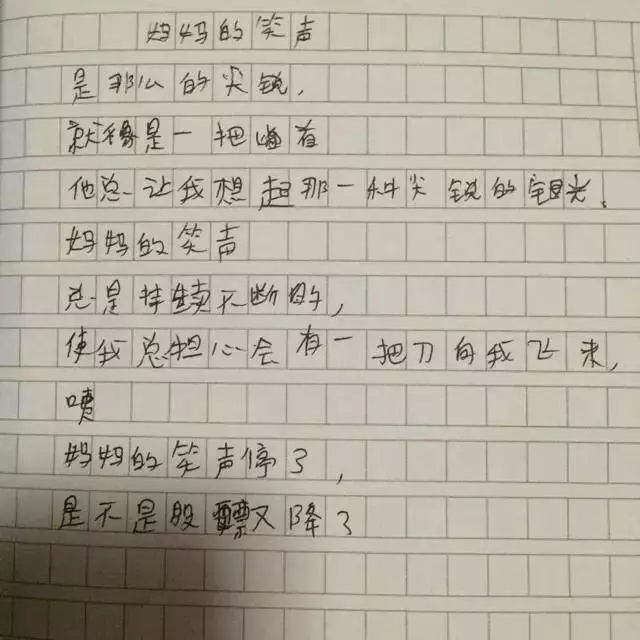 妈妈的笑声
是那么的尖锐，
就像是一把
他总让我想起那一种尖锐的眼光。
妈妈的笑声
总是持续不断的，
使我总担心会有一把刀向我飞来，
咦
妈妈的笑声停了，
是不是股票又降了